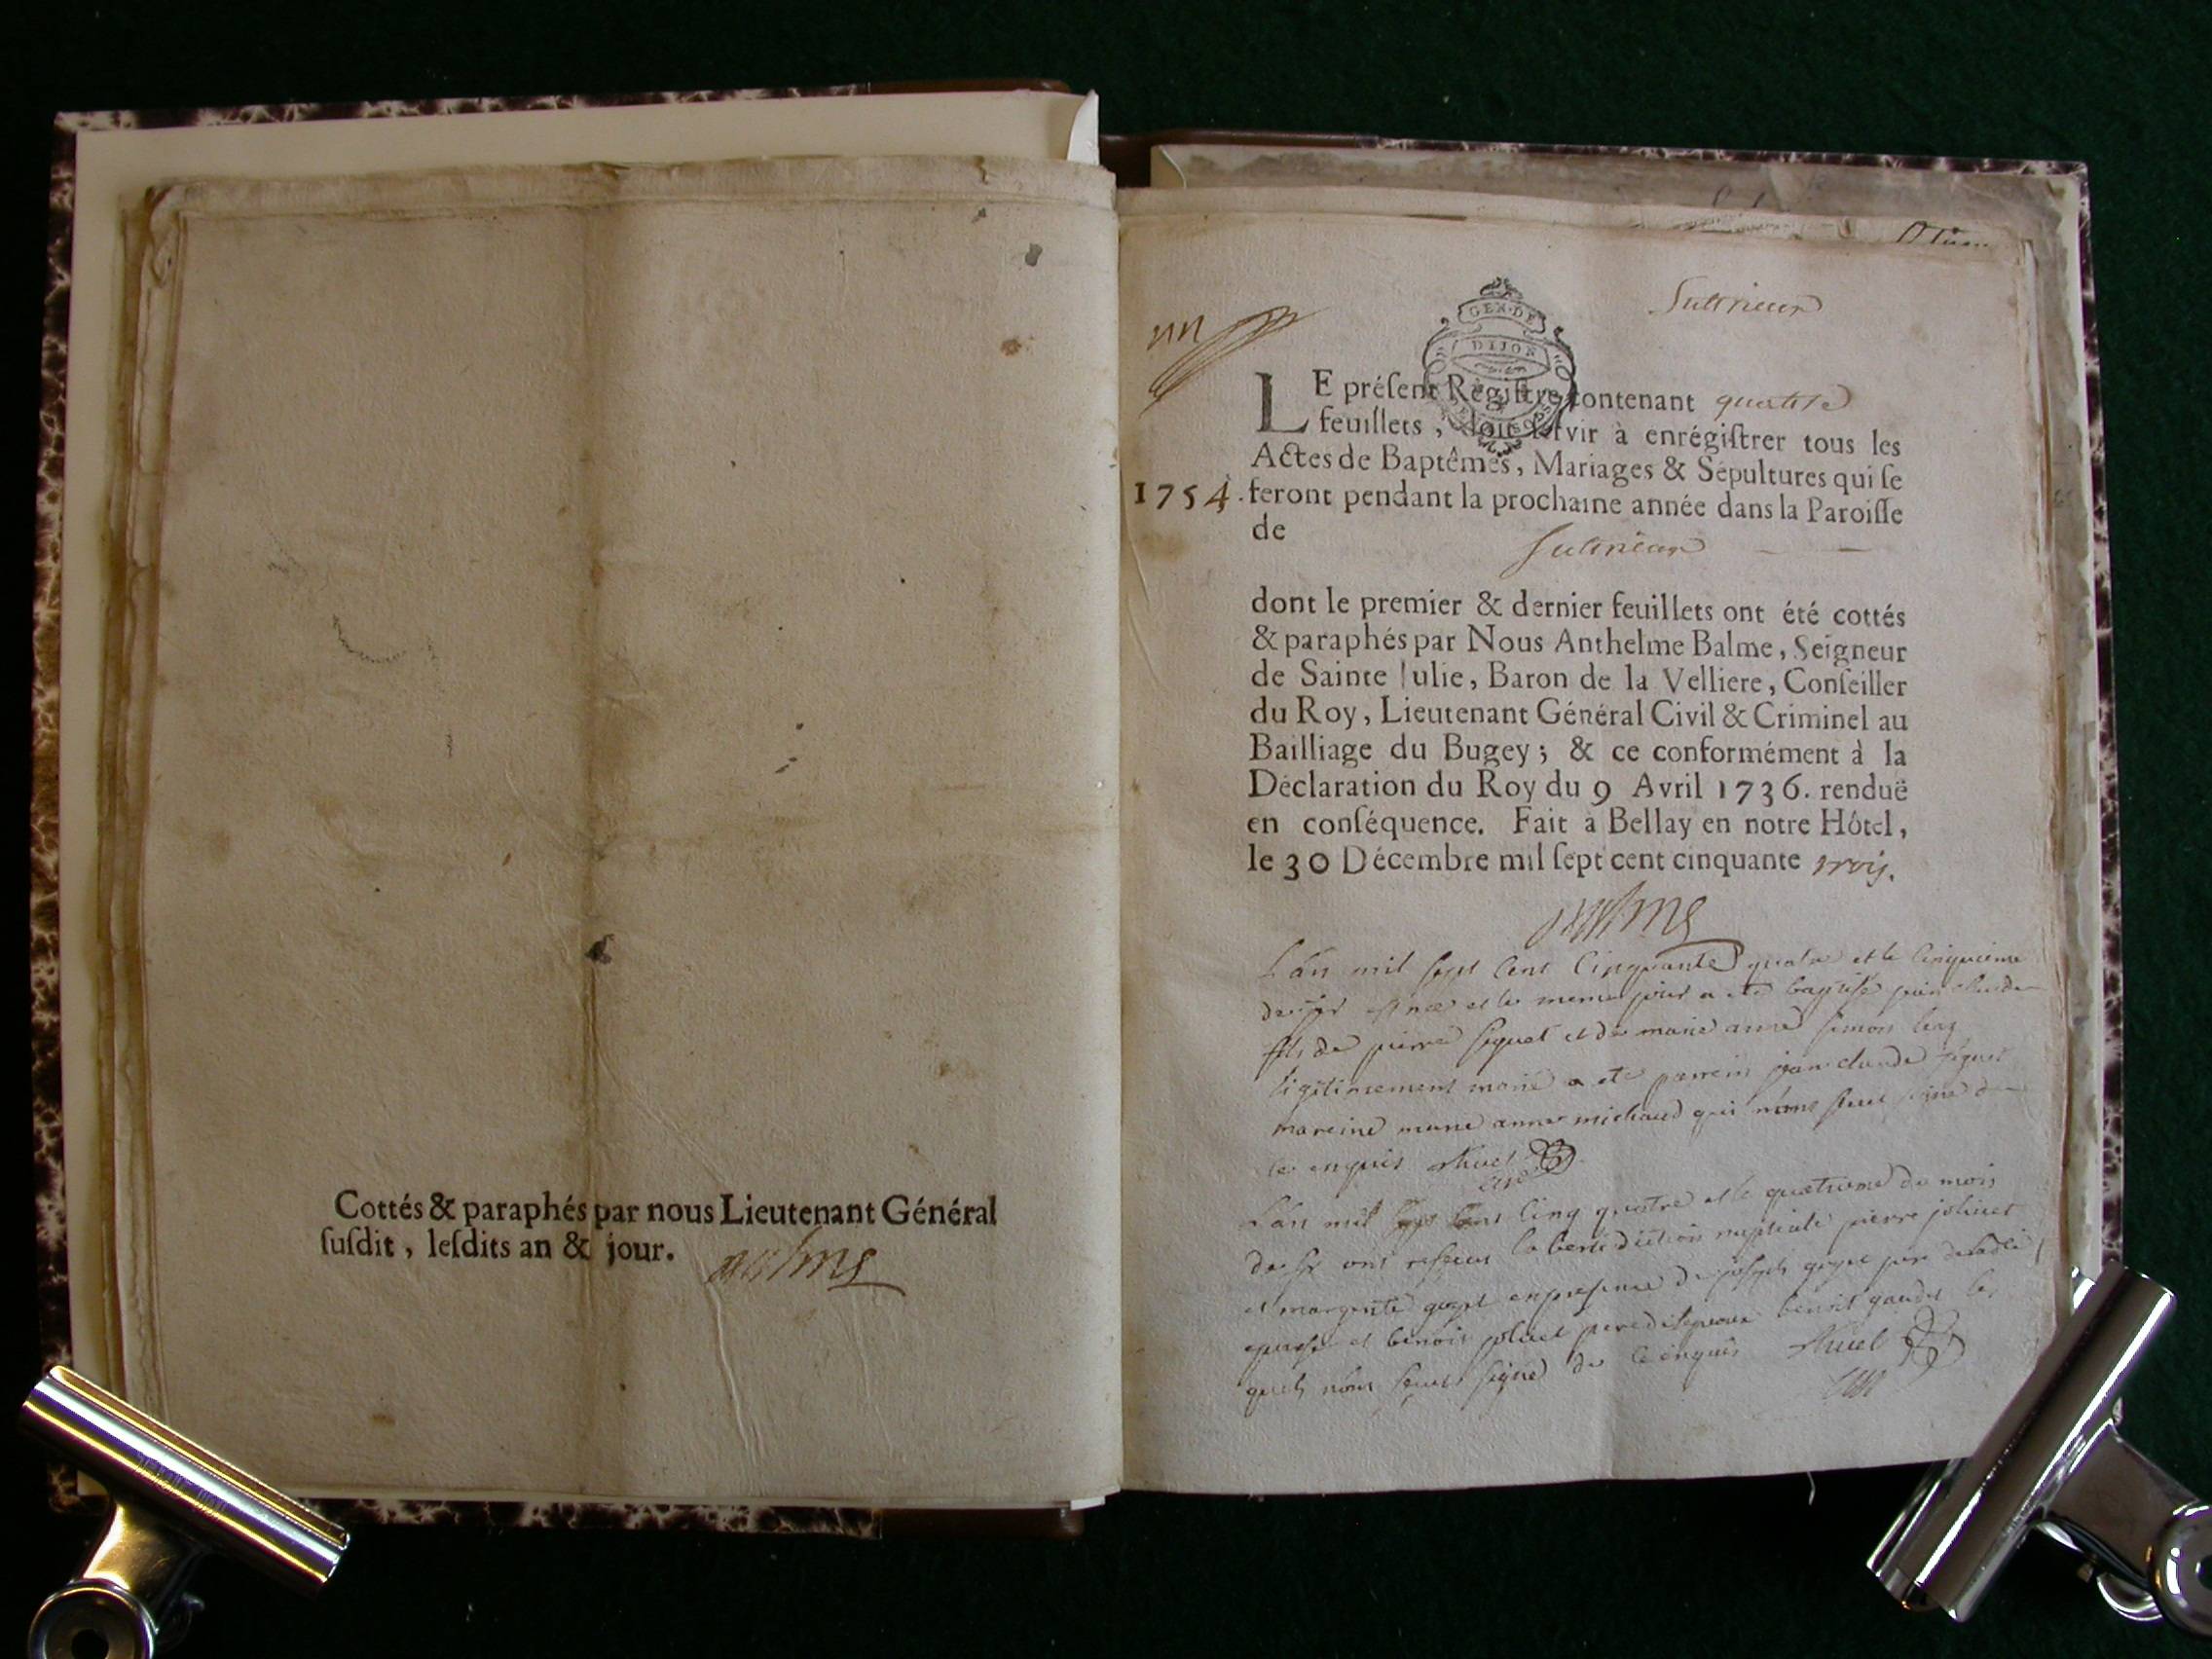 Cottés & paraphés par nous Lieutenant Général
ſuſdit, leſdits an & jour.
Balme
Sutrieux
un
GEN. DE
DIJON
LE préſent Régiſtre contenant quatre
feuillets, doit ſervir à enrégiſtrer tous les
Actes de Baptêmes, Mariages & Sépultures qui ſe
1754. feront pendant la prochaine année dans la Paroiſſe
de Sutrieux
dont le premier & dernier feuillets ont été cottés
& paraphés par Nous Anthelme Balme, Seigneur
de Sainte Julie, Baron de la Velliere, Conſeiller
du Roy, Lieutenant Général Civil & Criminel au
Bailliage du Bugey; & ce conformément à la
Déclaration du Roy du 9 Avril 1736. renduë
en conſéquence. Fait à Bellay en notre Hôtel,
le 30 Décembre mil ſept cent cinquante trois.
Balme
Lan mil sept cent cinquante quatre et le cinquieme
et le meme jour a ete baptisé jean claude
fils de pierre et de marie anne simon
legitimement marié a ete parrein jean claude
mareine marie anne michaud qui nont sceut signé de
ce enquis
Lan mil sept cens cinq quatre et le quatrieme du mois
de ont la benediction nuptiale pierre joliuet
et en presence de joseph pere de ladite
epouse et benoit joliuet pere benoit les
quels nont sceut signé de ce enquis